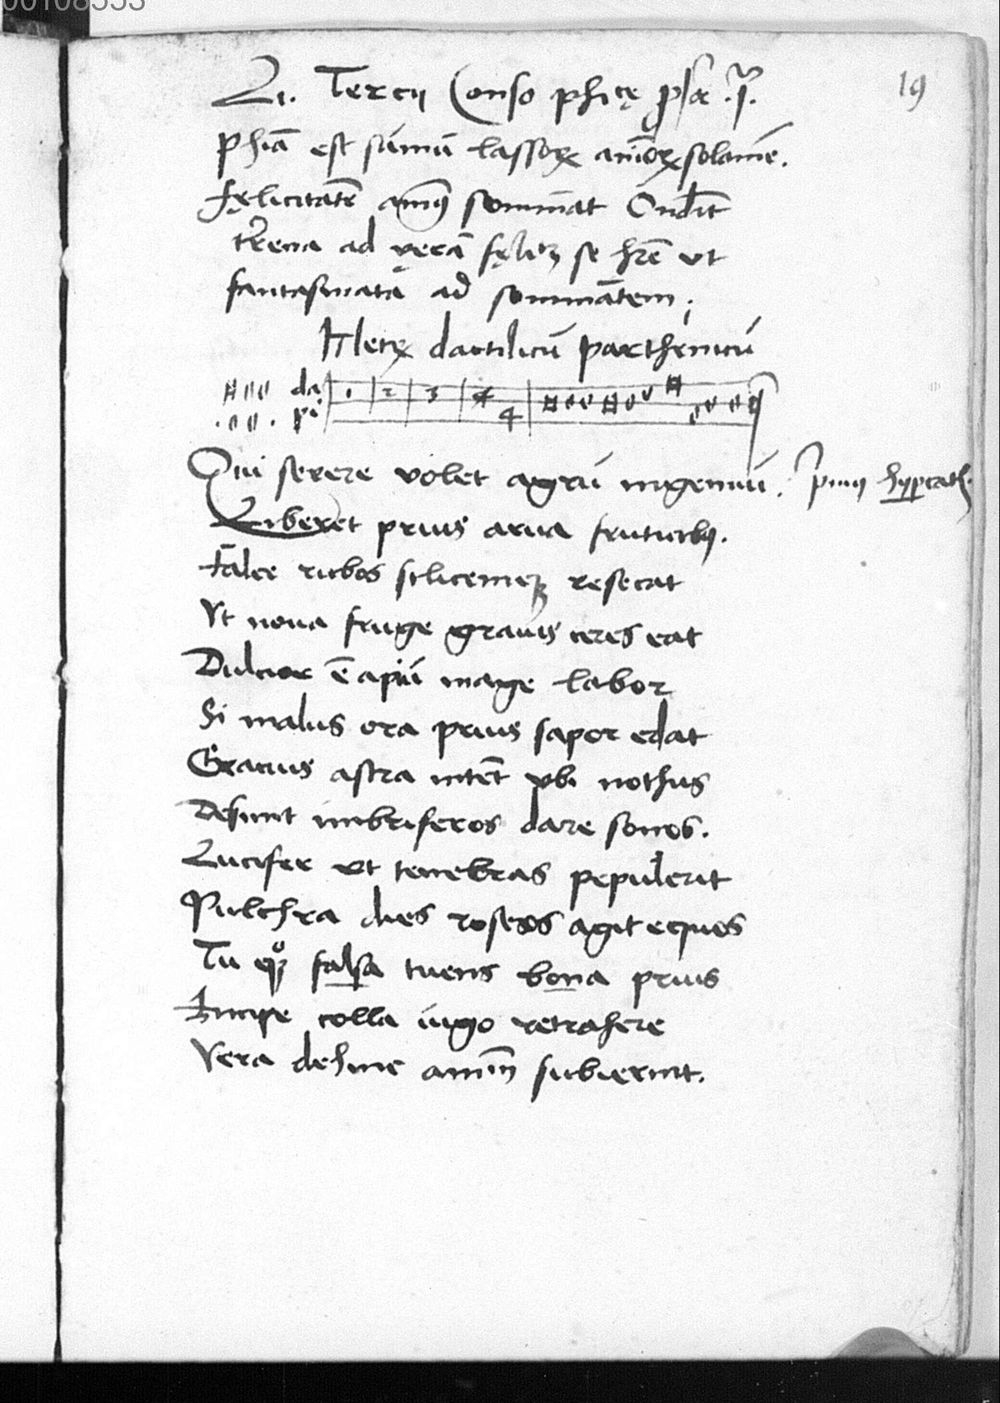 00108553
19
Li. Tercij Conso phicę psa .j.
Phia᷃ est sūmū lassoꝝ animoꝝ solamē.
Fęlicitatē animꝯ somniat Ondit
tr̄ena ad verā fęlitꝫ se hr̄e ut
fantasmata ad somniātem;
Metꝝ dactilicū parthenicū
da
pi
1 2 3 4
4
Qui serere volet agrū ingenuū. primꝯ
Liberet prius arua fruticibꝯ.
Falce rubos silicemqꝫ resecat
Vt noua fruge grauis ceres eat
Dulcior ē apiū mage labor
Si malus ora prius sapor edat
Gratius astra nitēt vbi nothus
Desinit imbriferos dare sonos.
Lucifer vt tenebras pepulerit
Pulchra dies roseos agit equos
Tu qꝫ falsa tuens bona prius
Incipe colla iugo retrahere
Vera dehinc animū subierint.